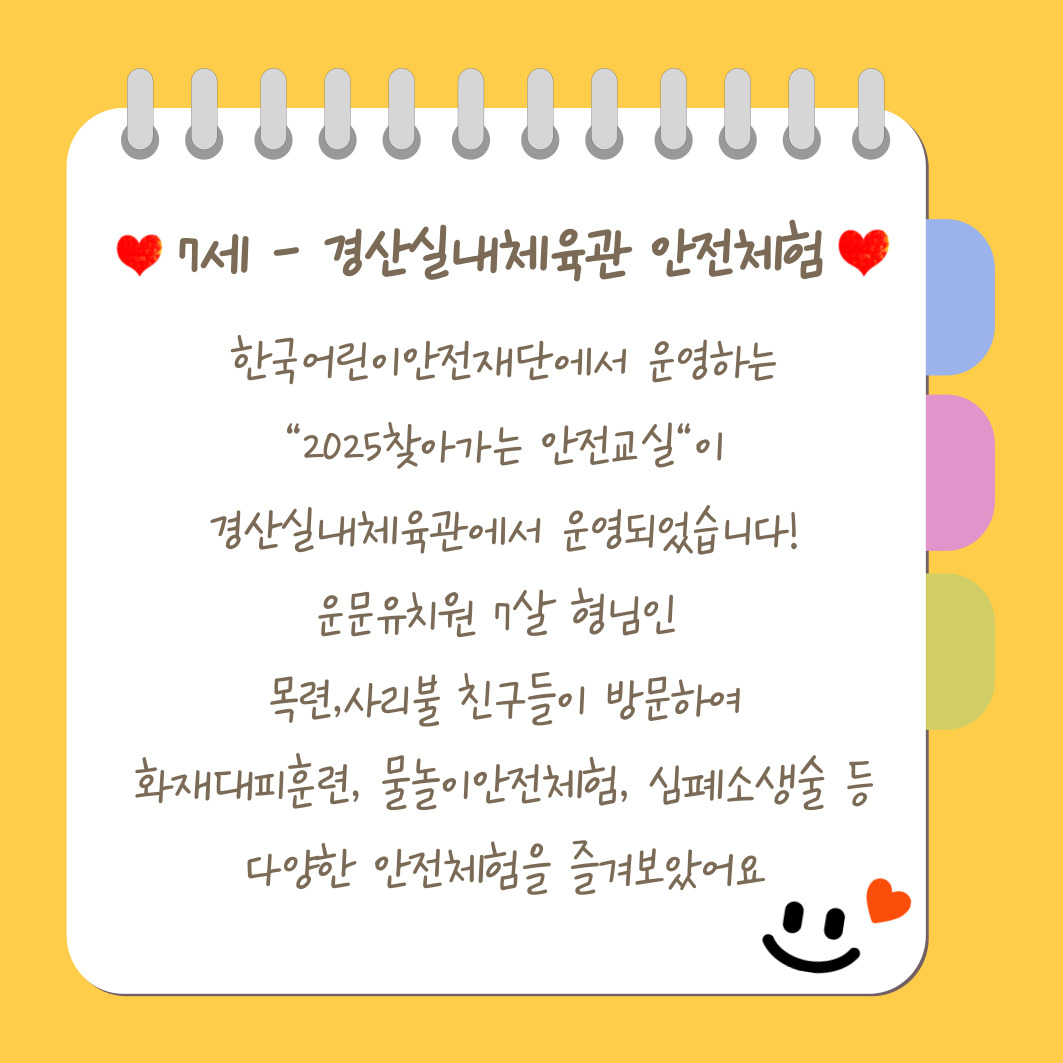 7세 - 경산실내체육관 안전체험
한국어린이안전재단에서 운영하는
“2025찾아가는 안전교실“이
경산실내체육관에서 운영되었습니다!
운문유치원 7살 형님인
목련,사리불 친구들이 방문하여
화재대피훈련, 물놀이안전체험, 심폐소생술 등
다양한 안전체험을 즐겨보았어요